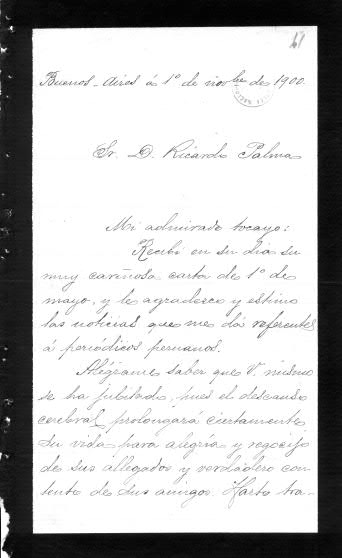 61
Buenos-Aires á 1º de novbe de 1900.
Sr. D. Ricardo Palma
Mi admirado tocayo:
Recibí en su dia su
muy cariñosa carta de 1º de
mayo, y le agradezco y estimo
las noticias que me dá referentes
á periódicos peruanos.
Alégrame saber que V. mismo
se ha jubilado, pues el descanso
cerebral prolongará ciertamente
su vida para alegría y regocijo
de sus allegados y verdadero con
tento de sus amigos. Harto tra-